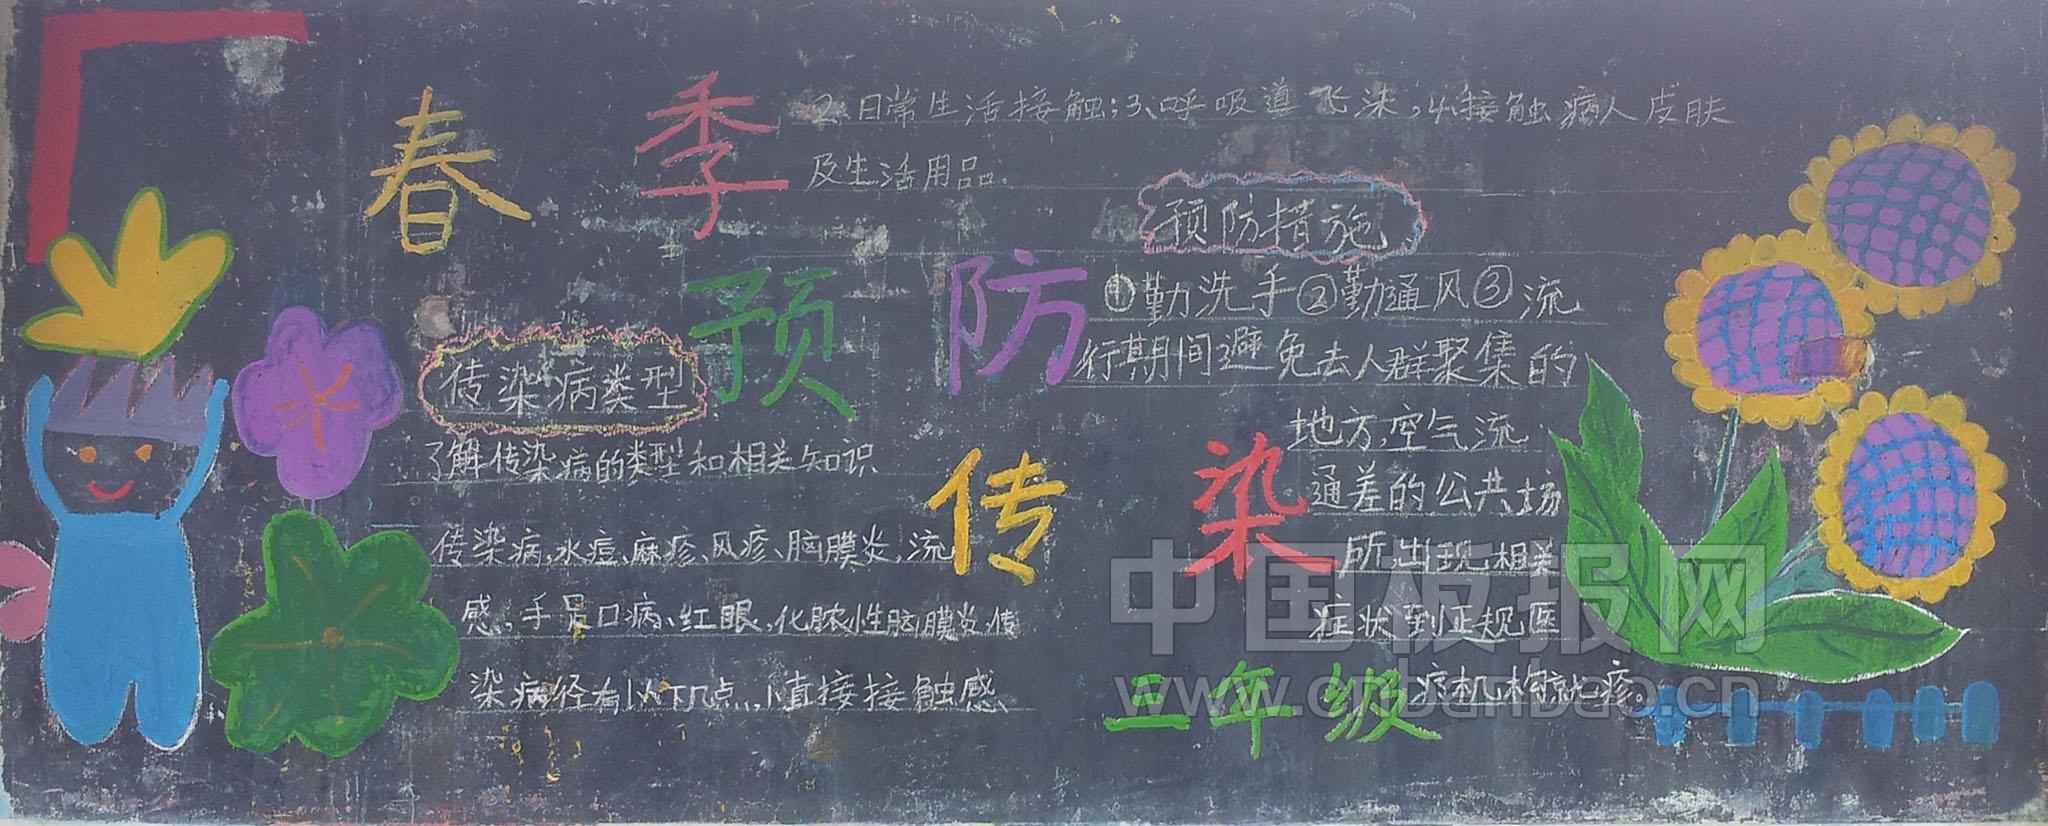 春季
预防
传染
传染病类型
了解传染病的类型和相关知识
传染病,水痘、麻疹、风疹、脑膜炎,流
感,手足口病、红眼,化脓性脑膜炎传
染病径有以下几点:、1直接接触感
2、日常生活接触;3、呼吸道飞沫,4、接触病人皮肤
及生活用品.
预防措施
①勤洗手②勤通风③流
行期间避免去人群聚集的
地方,空气流
通差的公共场
所出现相关
症状到正规医
疗机构就疹
三年级
中国板报网
www.cnbanbao.cn